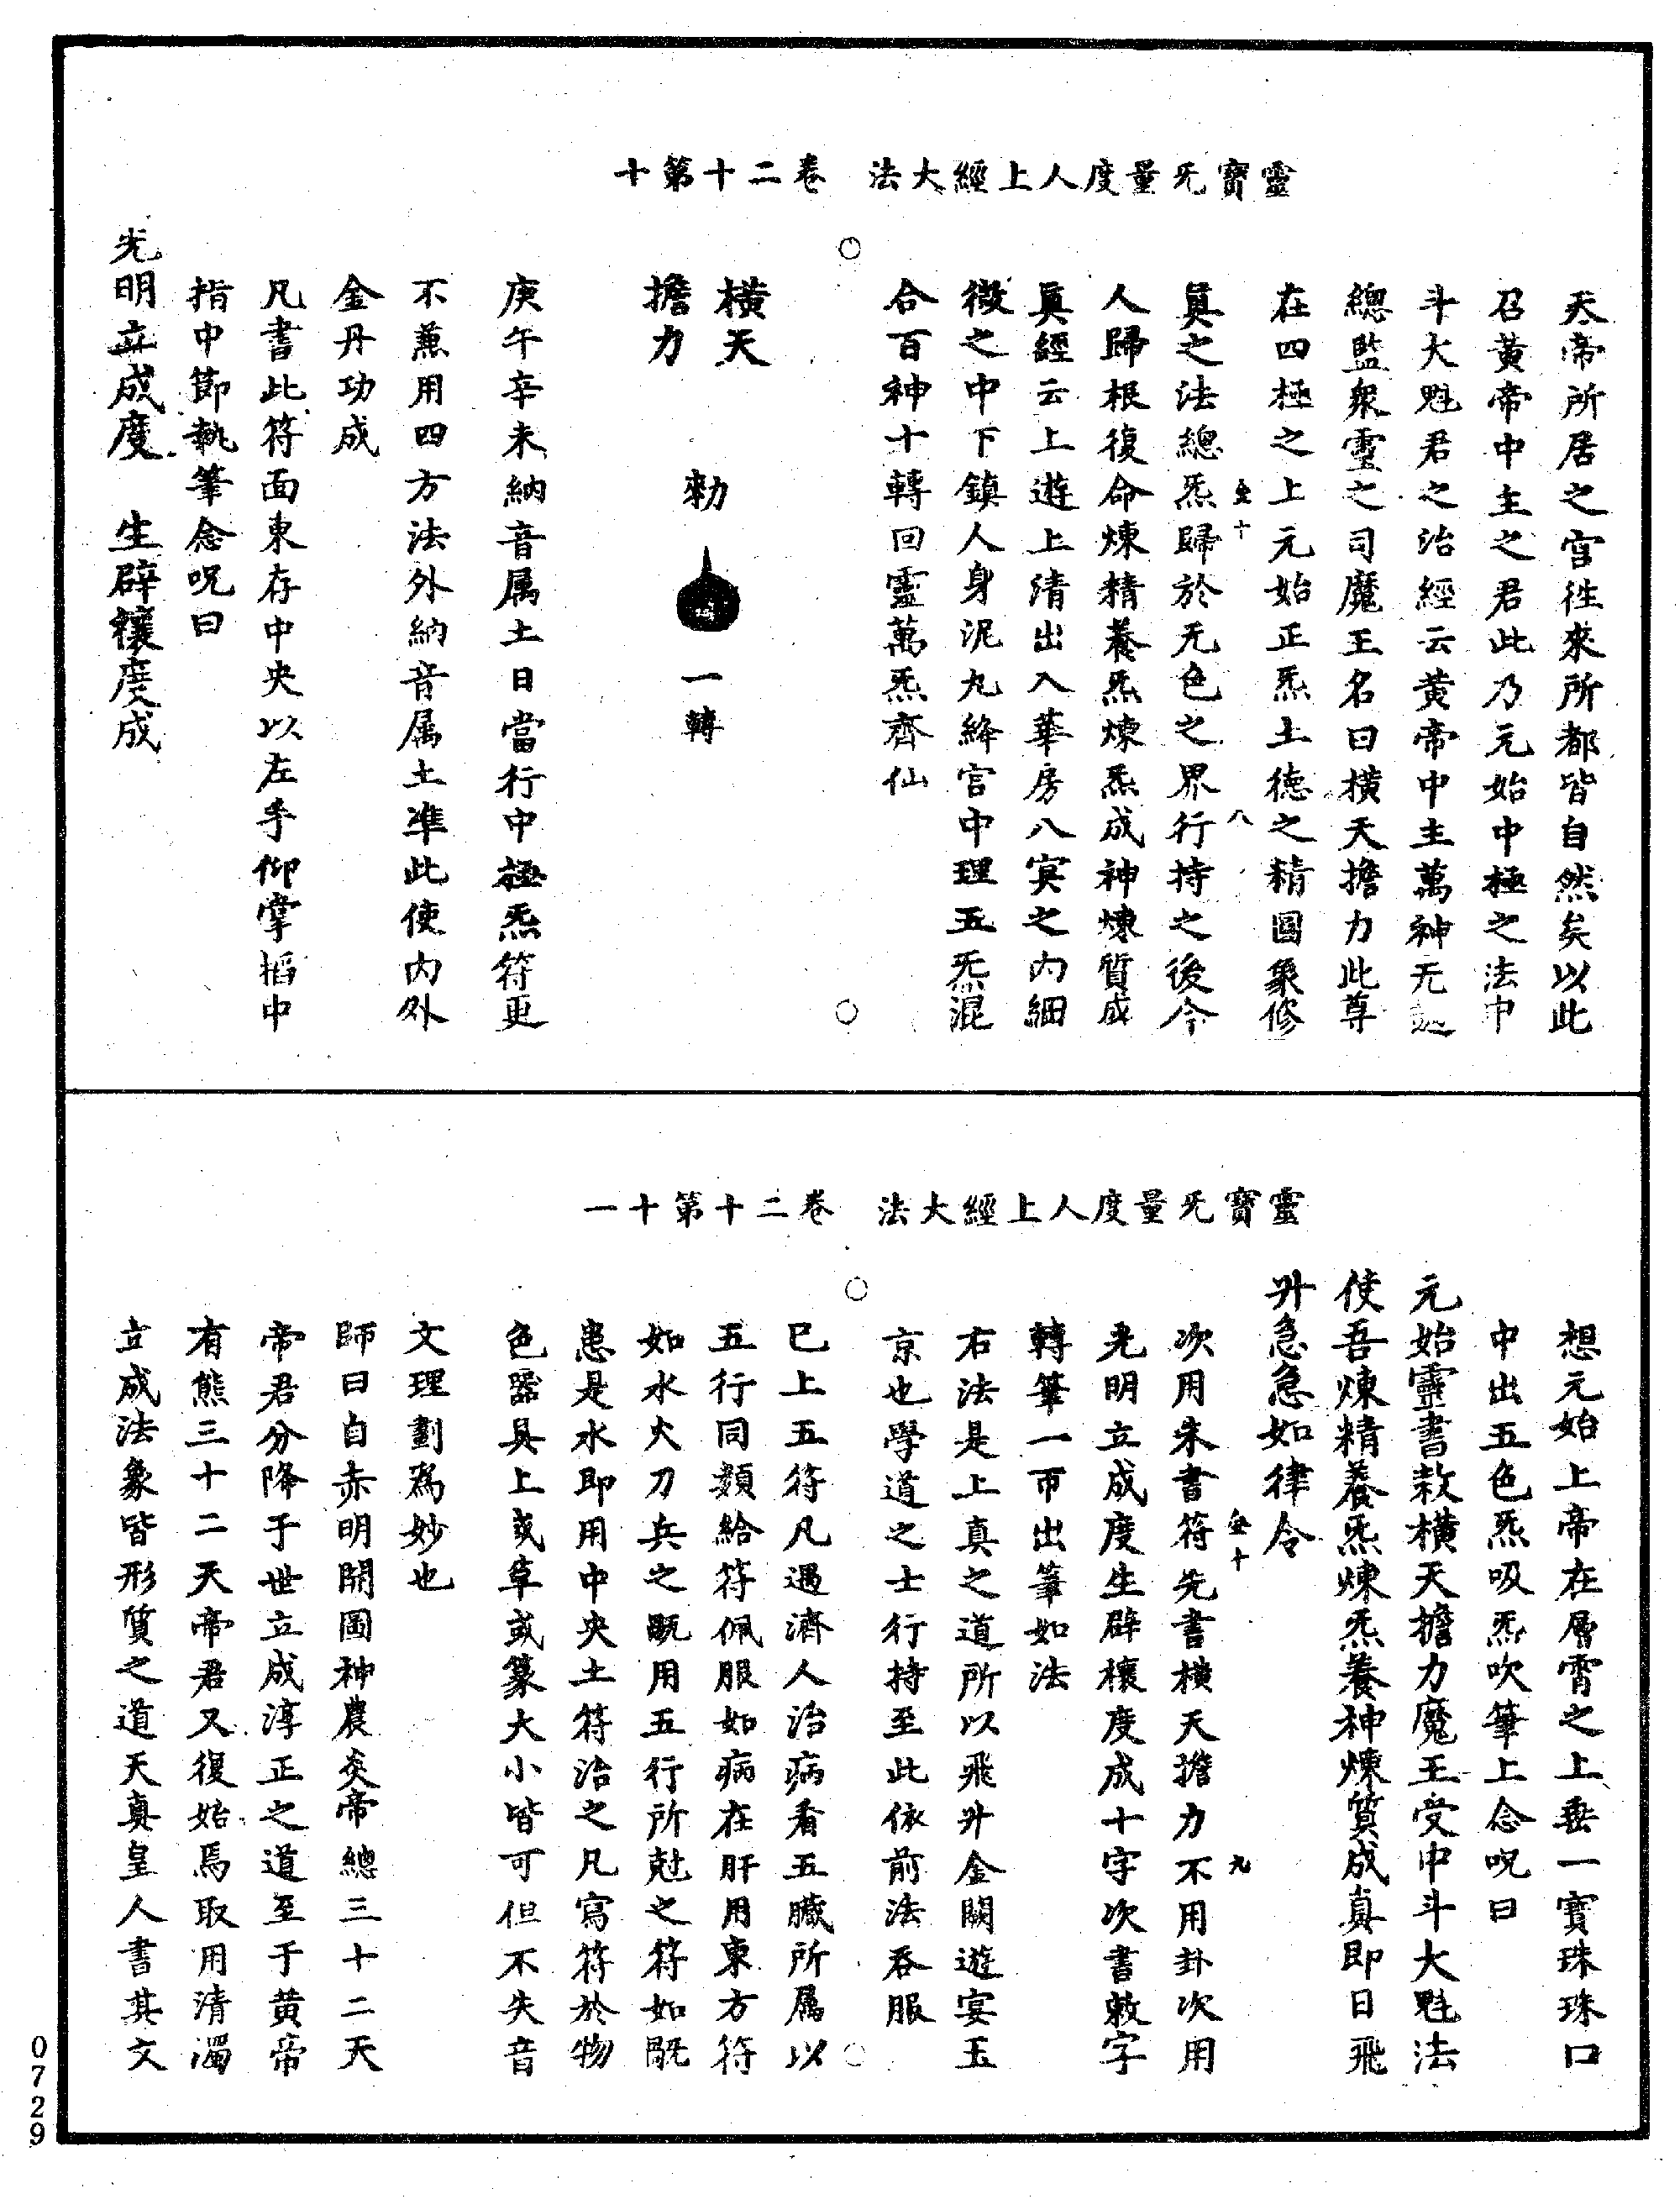 靈寶旡量度人上經大法　卷二十第十
天帝所居之宫徃來所都皆自然矣以此
召黃帝中主之君此乃元始中極之法中
斗大魁君之治經云黄帝中主萬神无越
總監衆靈之司魔王名曰橫天擔力此尊
在四極之上元始正炁土德之精圖象修
真之法總炁歸於无色之界行持之後令
人歸根復命煉精養炁煉炁成神煉質成
真經云上遊上清出入華房八冥之内細
微之中下鎮人身泥丸絳宫中理五炁混
合百神十轉回靈萬炁齊仙
橫天
擔力
勑　一轉
庚午辛未納音属土日當行中極炁符更
不兼用四方法外納音属土準此使内外
金丹功成
凡書此符面東存中央以左手仰掌掐中
指中節執筆念呪曰
光明立成度　生辟禳度成
靈寶旡量度人上經大法　卷二十第十一
想元始上帝在層霄之上垂一寶珠珠口
中出五色炁吸炁吹筆上念呪曰
元始靈書敕橫天擔力魔王受中斗大魁法
使吾煉精養炁煉炁養神煉質成真即日飛
升急急如律令
次用朱書符先書橫天擔力不用卦次用
光明立成度生辟禳度成十字次書敕字
轉筆一帀出筆如法
右法是上真之道所以飛升金闕遊宴玉
京也學道之士行持至此依前法吞服
已上五符凡遇濟人治病看五臟所属以
五行同類給符佩服如病在肝用東方符
如水火刀兵之厩用五行所尅之符如厩
患是水即用中央土符治之凡寫符於物
色器具上或草或篆大小皆可但不失音
文理劃爲妙也
師曰自赤明開圖神農炎帝總三十二天
帝君分降于世立成淳正之道至于黄帝
有熊三十二天帝君又復始焉取用清濁
立成法象皆形質之道天真皇人書其文
0729